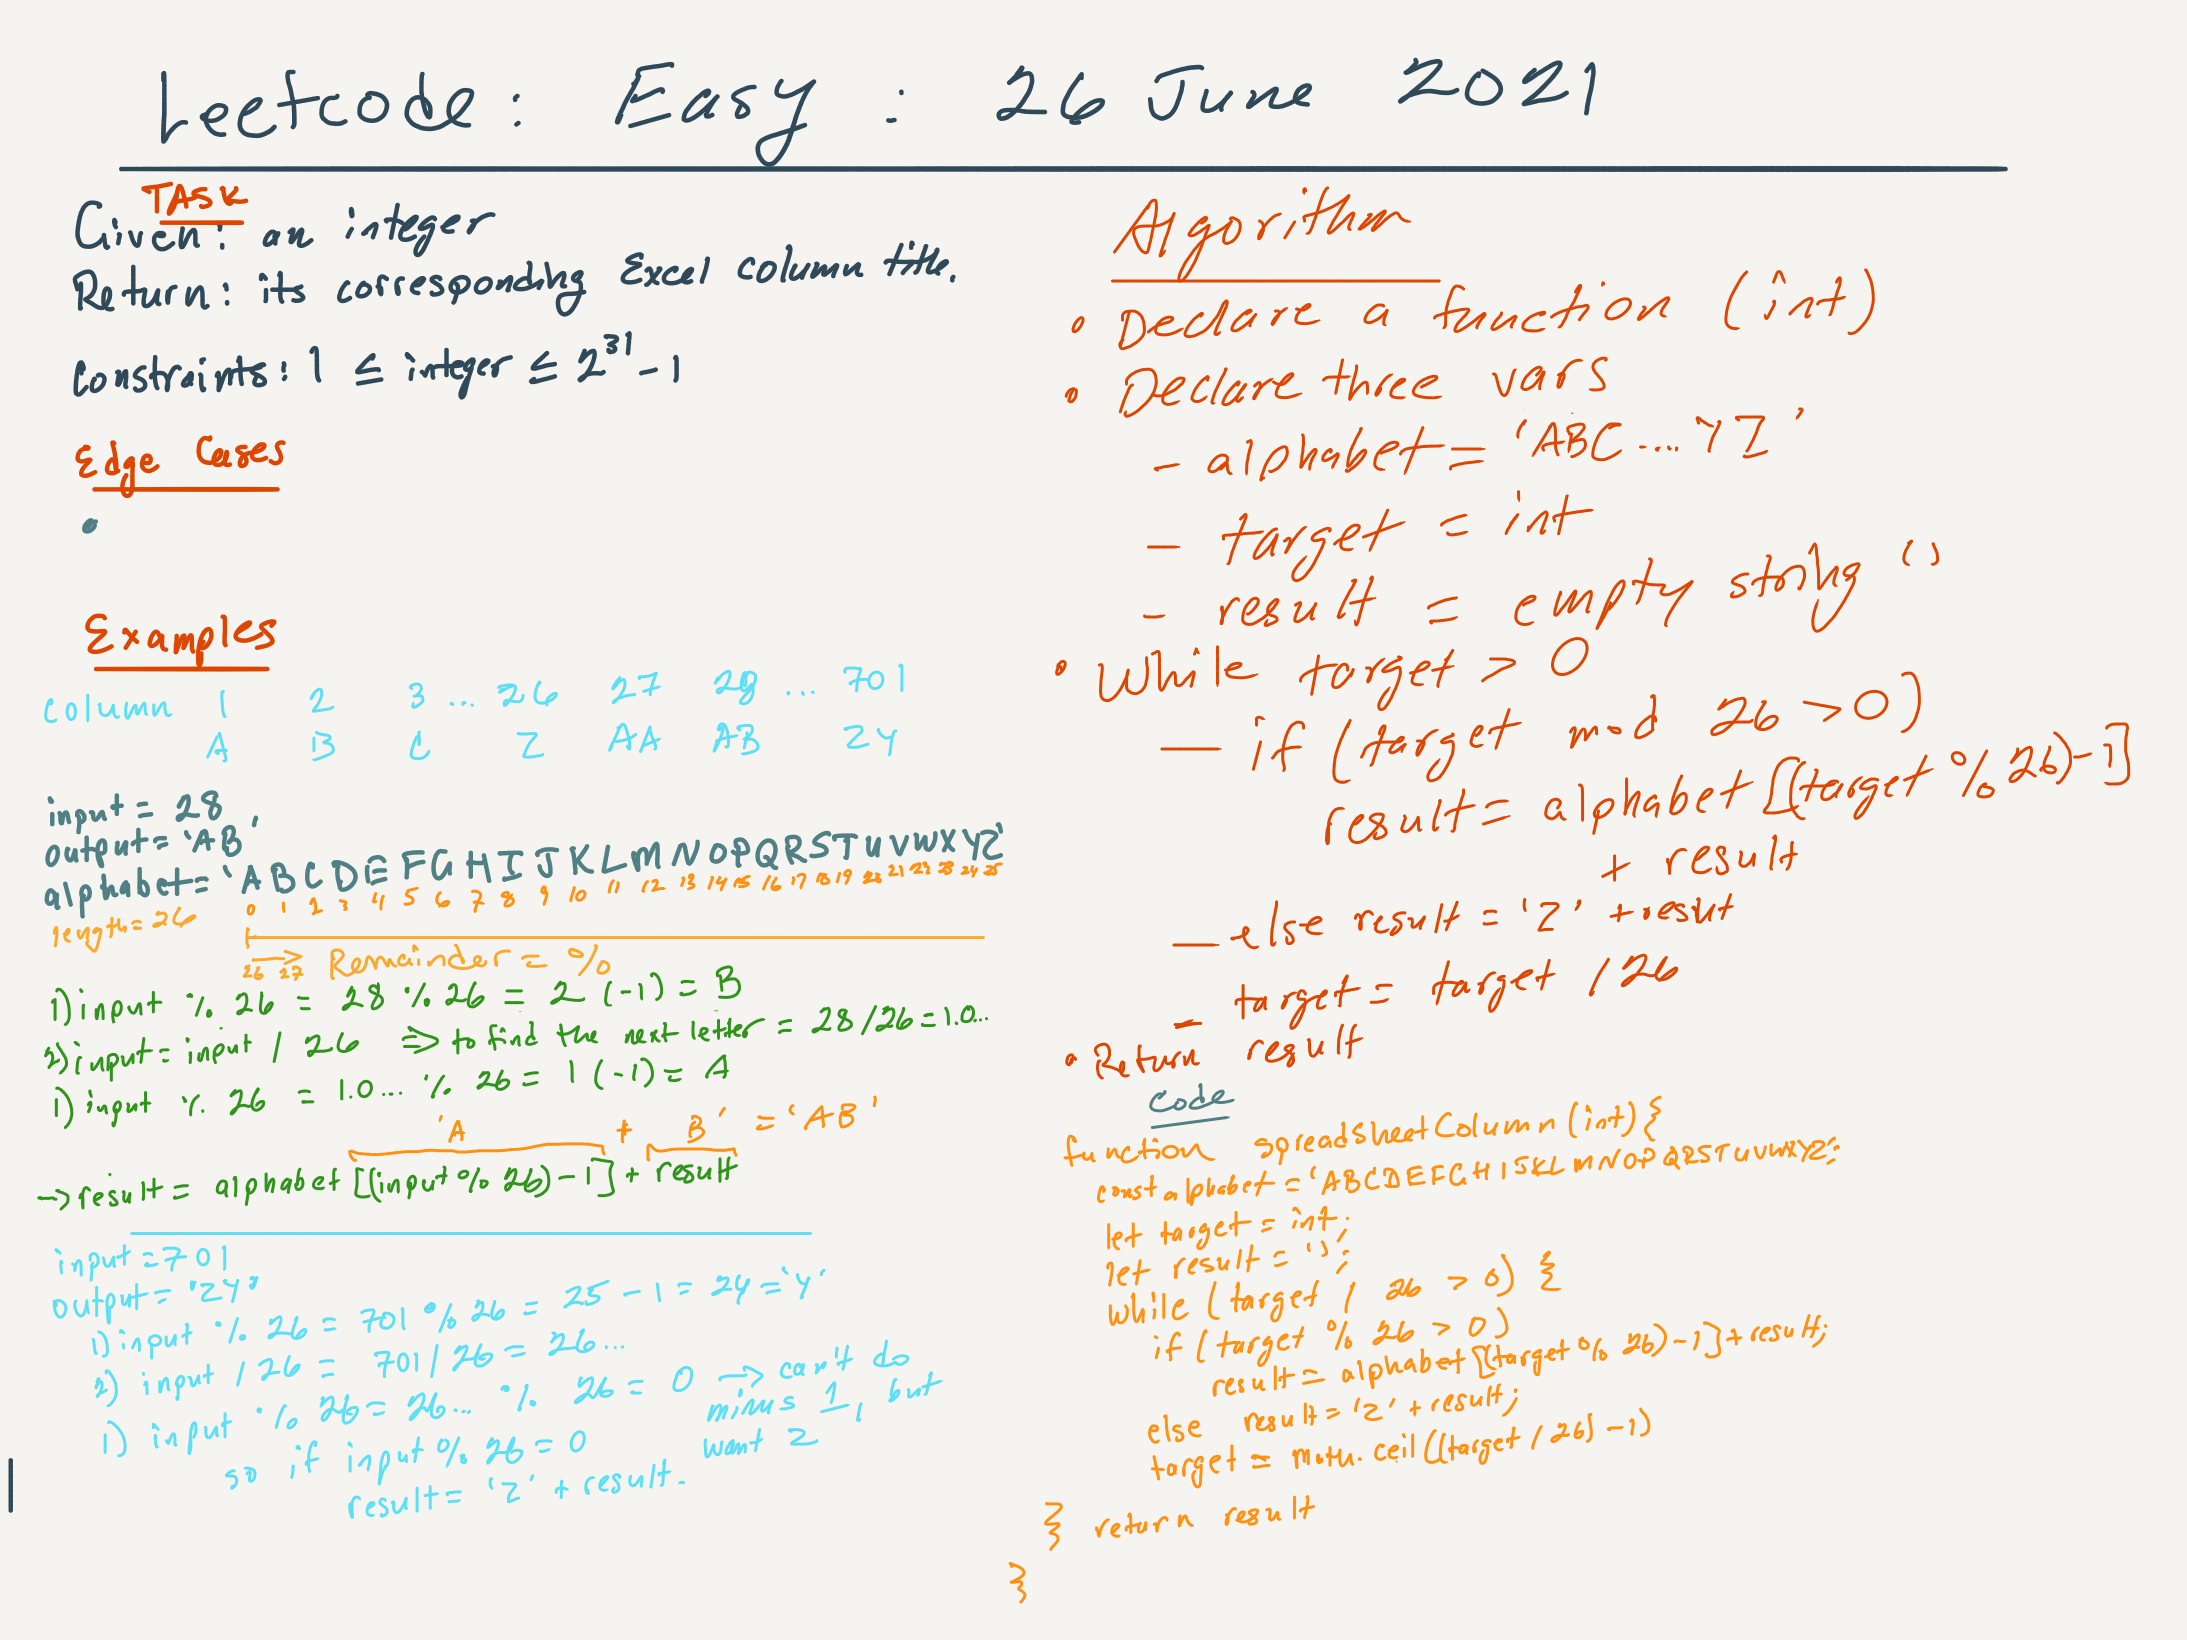 Leetcode: Easy : 26 June 2021
TASK
Given: an integer
Return: its corresponding Excel column title.
Constraints: 1 ≤ integer ≤ 2^31 - 1
Edge Cases
•
Examples
column 1 2 3 ... 26 27 28 ... 701
A B C Z AA AB ZY
input = 28
output = 'AB'
alphabet = 'ABCDEFGHIJKLMNOPQRSTUVWXYZ'
length = 26 0 1 2 3 4 5 6 7 8 9 10 11 12 13 14 15 16 17 18 19 20 21 22 23 24 25
26 27 Remainder = %
1) input % 26 = 28 % 26 = 2 (-1) = B
2) input = input / 26 => to find the next letter = 28/26 = 1.0...
1) input % 26 = 1.0... % 26 = 1 (-1) = A
'A + B' = 'AB'
→ result = alphabet [(input % 26) - 1] + result
input = 701
output = 'ZY'
1) input % 26 = 701 % 26 = 25 - 1 = 24 = 'Y'
2) input / 26 = 701 / 26 = 26...
1) input % 26 = 26... % 26 = 0 → can't do
minus 1, but
want Z
so if input % 26 = 0
result = 'Z' + result.
Algorithm
• Declare a function (int)
• Declare three vars
- alphabet = 'ABC...YZ'
- target = int
- result = empty string ''
• While target > 0
- if (target mod 26 > 0)
result = alphabet [(target % 26) - 1]
+ result
- else result = 'Z' + result
- target = target / 26
• Return result
Code
function spreadsheetColumn (int) {
const alphabet = 'ABCDEFGHIJKLMNOPQRSTUVWXYZ';
let target = int;
let result = '';
while (target / 26 > 0) {
if (target % 26 > 0)
result = alphabet [(target % 26) - 1] + result;
else result = 'Z' + result;
target = math.ceil((target / 26) - 1)
} return result
}